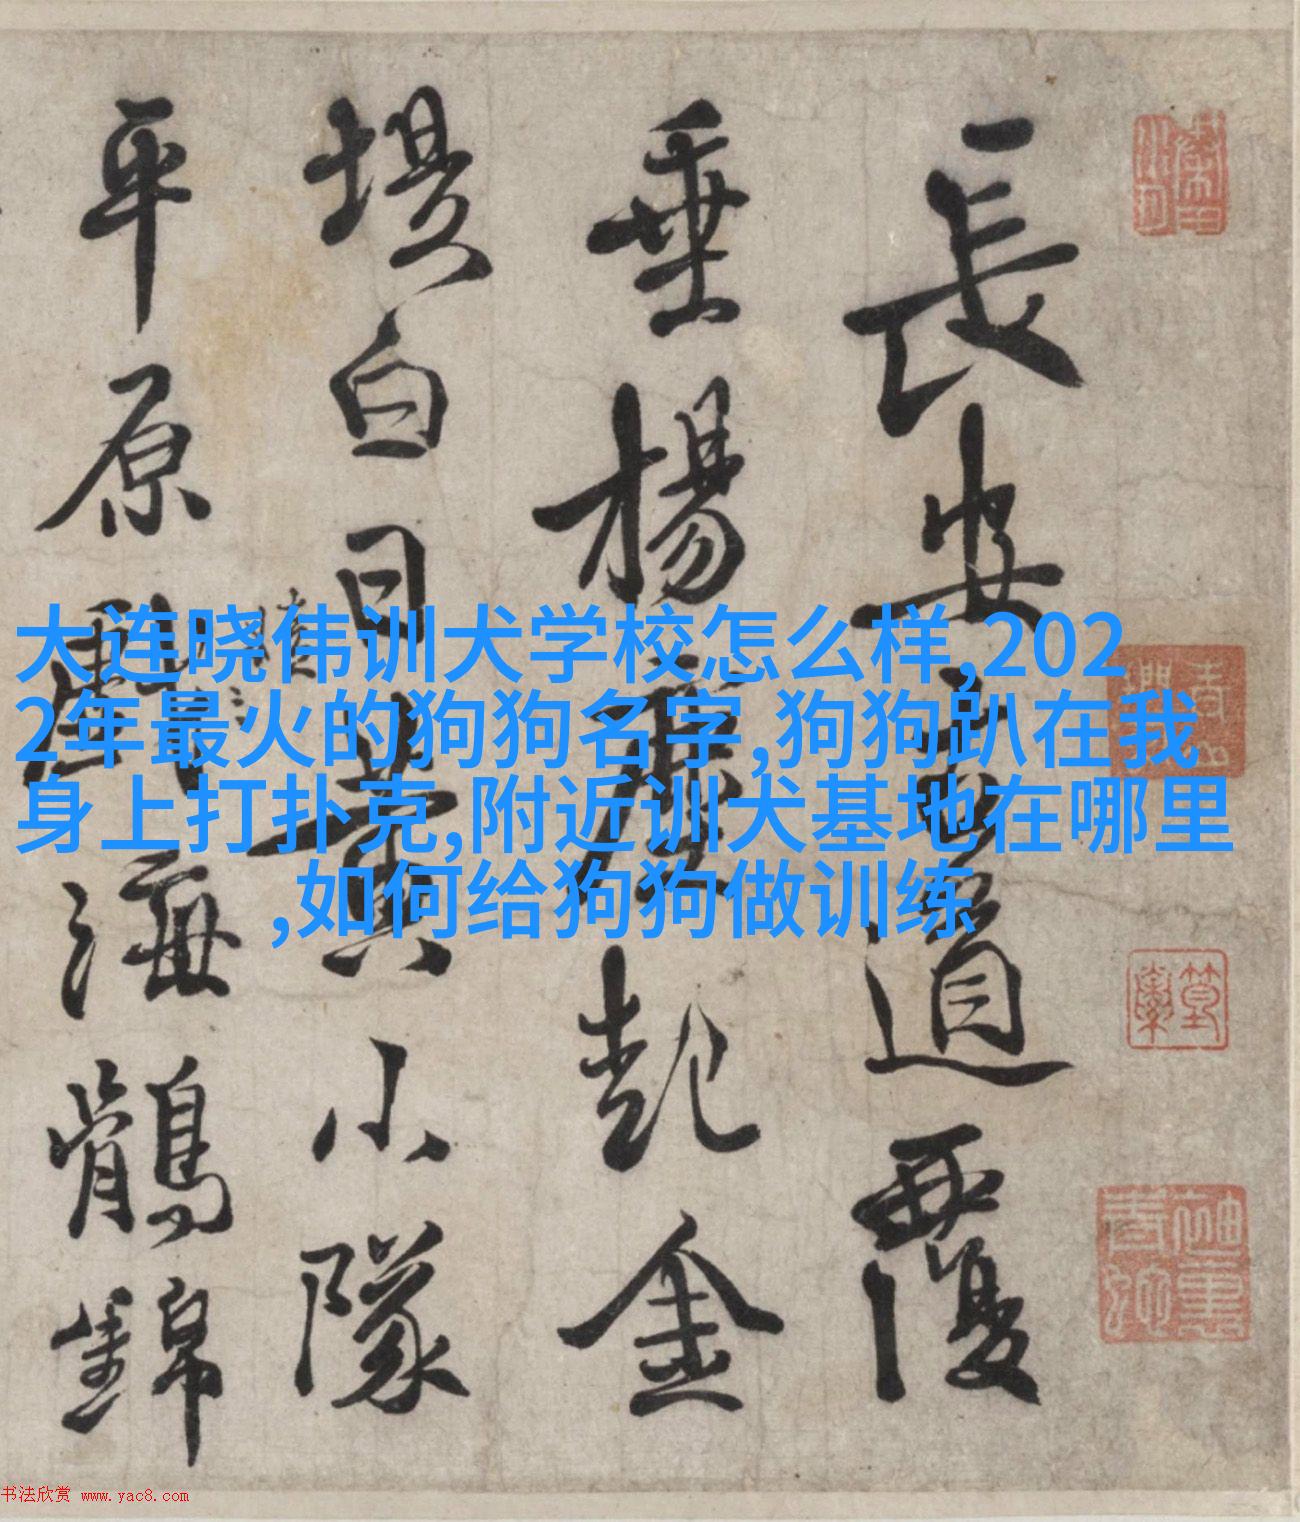 長安道覆
垂楊起金
堤白日小隊
平原海鶻錦
大连晓伟训犬学校怎么样,202
2年最火的狗狗名字,狗狗趴在我
身上打扑克,附近训犬基地在哪里
,如何给狗狗做训练
书法欣赏 www.yac8.com